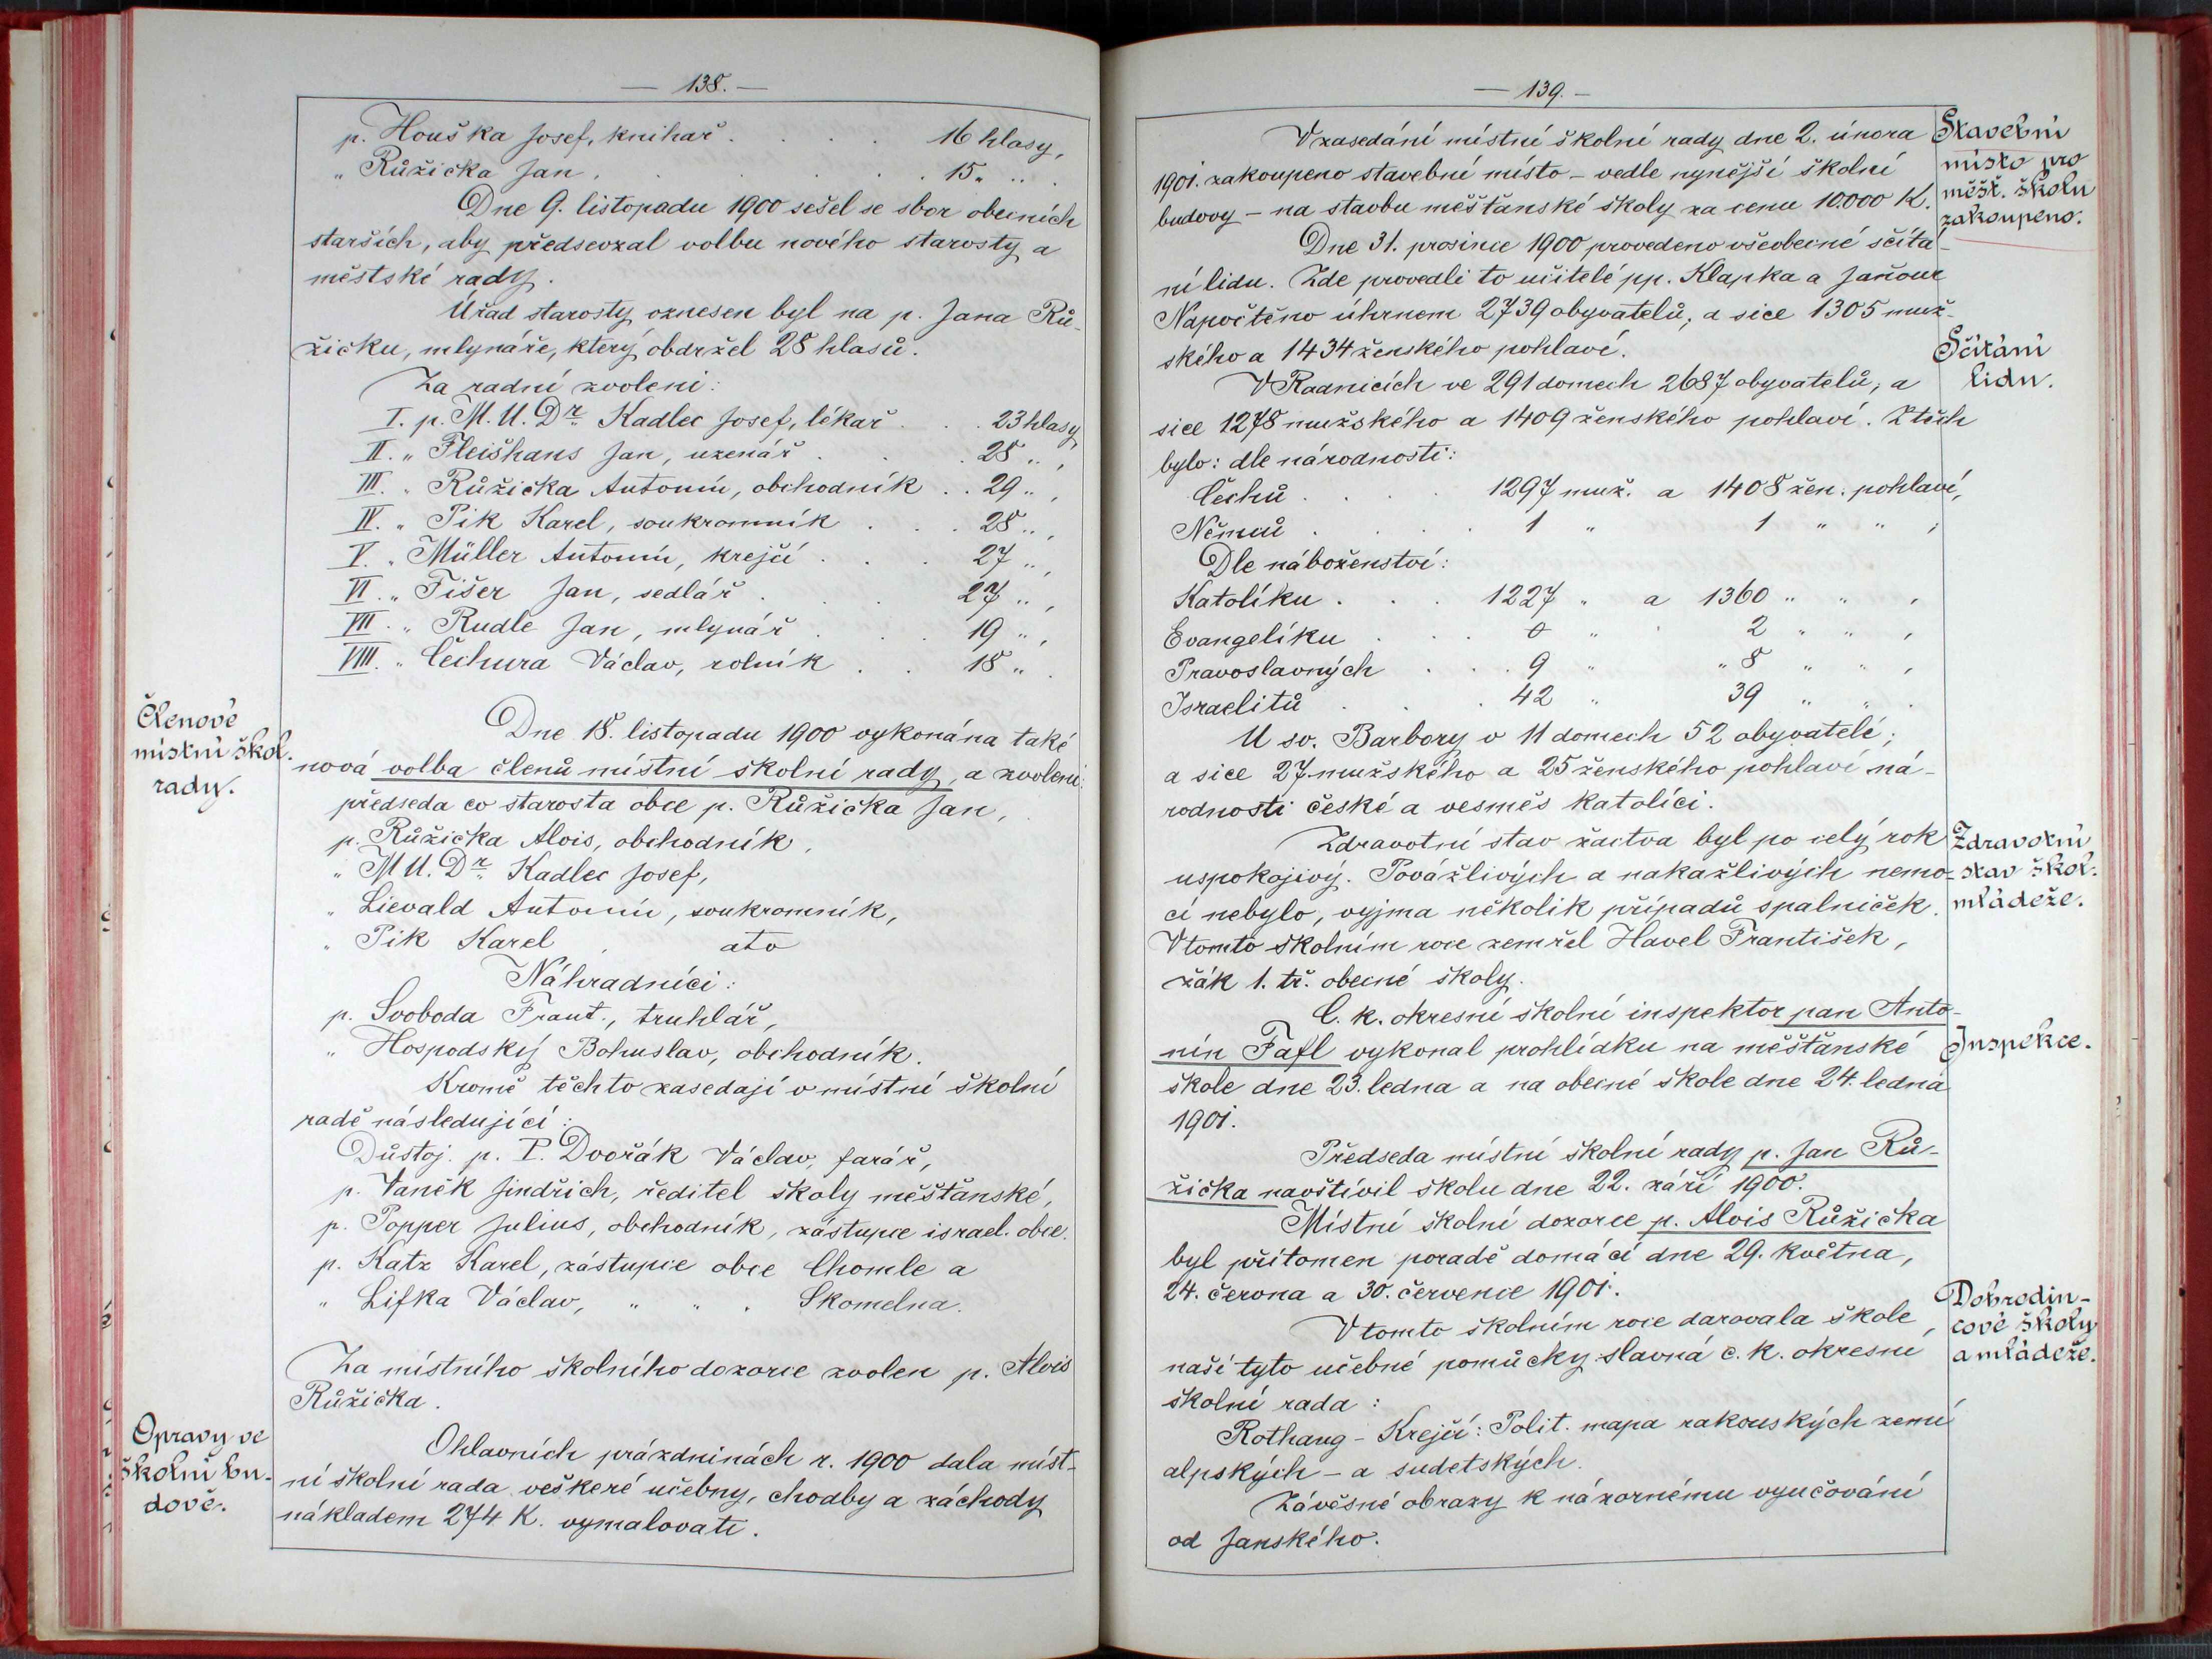 — 138. —
p. Houška Josef, knihař . . . . 16 hlasy,
„ Růžička Jan . . . . . . 15 „ .
Dne 9. listopadu 1900 sešel se sbor obecních
starších, aby předsevzal volbu nového starosty a
městské rady.
Úřad starosty vznesen byl na p. Jana Rů-
žičku, mlynáře, který obdržel 28 hlasů.
Za radní zvoleni:
I. p. M. U. Dr. Kadlec Josef, lékař . . . 23 hlasy,
II. „ Fleišhans Jan, uzenář . . . 28 „ ,
III. „ Růžička Antonín, obchodník . . 29 „ ,
IV. „ Pik Karel, soukromník . . . 28 „ ,
V. „ Müller Antonín, krejčí . . . 27 „ ,
VI. „ Fišer Jan, sedlář . . . 27 „ ,
VII. „ Rudle Jan, mlynář . . . 19 „ ,
VIII. „ Čechura Václav, rolník . . 18 „ .
Členové
místní škol.
rady.
Dne 18. listopadu 1900 vykonána také
nová volba členů místní školní rady, a zvoleni:
předseda co starosta obce p. Růžička Jan,
p. Růžička Alois, obchodník,
„ M U. Dr. Kadlec Josef,
„ Lievald Antonín, soukromník,
„ Pik Karel , ato
Náhradníci:
p. Svoboda Frant., truhlář,
„ Hospodský Bohuslav, obchodník.
Kromě těchto zasedají v místní školní
radě následující:
Důstoj. p. P. Dvořák Václav, farář,
p. Vaněk Jindřich, ředitel školy měšťanské,
p. Popper Julius, obchodník, zástupce israel. obce.
p. Katz Karel, zástupce obce Chomle a
„ Lifka Václav, „ „ Skomelna.
Za místního školního dozorce zvolen p. Alois
Růžička.
Opravy ve
školní bu-
dově.
O hlavních prázdninách r. 1900 dala míst-
ní školní rada veškeré učebny, chodby a záchody
nákladem 274 K. vymalovati.
— 139. —
V zasedání místní školní rady dne 2. února
1901. zakoupeno stavební místo – vedle nynější školní
budovy – na stavbu měšťanské školy za cenu 10.000 K.
Stavební
místo pro
měšť. školu
zakoupeno.
Dne 31. prosince 1900 provedeno všeobecné sčítá-
ní lidu. Zde provedli to učitelé pp. Klapka a Jaňour
Napočtěno úhrnem 2739 obyvatelů, a sice 1305 muž-
ského a 1434 ženského pohlaví.
Sčítání
lidu.
V Radnicích ve 291 domech 2687 obyvatelů, a
sice 1278 mužského a 1409 ženského pohlaví. Z těch
bylo: dle národnosti:
Čechů . . . . 1297 muž. a 1408 žen. pohlaví,
Němců . . . . 1 „ 1 „ „ ,
Dle náboženství:
Katolíku . . . 1227 „ a 1360 „ „ ,
Evangelíku . . . 0 „ 2 „ „ ,
Pravoslavných . . . 9 „ „ 8 „ „ ,
Israelitů . . . 42 „ 39 „ „ .
U sv. Barbory v 11 domech 52 obyvatelé;
a sice 27 mužského a 25 ženského pohlaví ná-
rodnosti české a vesměs katolíci.
Zdravotní stav žactva byl po celý rok
uspokojivý. Povážlivých a nakažlivých nemo-
cí nebylo, vyjma několik případů spalniček.
Zdravotní
stav škol.
mládeže.
V tomto školním roce zemřel Havel František,
žák 1. tř. obecné školy.
C. k. okresní školní inspektor pan Anto-
nín Fafl vykonal prohlídku na měšťanské
Inspekce.
škole dne 23. ledna a na obecné škole dne 24. ledna
1901.
Předseda místní školní rady p. Jan Rů-
žička navštívil školu dne 22. září 1900.
Místní školní dozorce p. Alois Růžička
byl přítomen poradě domácí dne 29. května,
24. června a 30. července 1901.
Dobrodin-
cové školy
a mládeže.
V tomto školním roce darovala škole
naší tyto učebné pomůcky slavná c. k. okresní
školní rada :
Rothaug – Krejčí: Polit. mapa rakouských zemí
alpských – a sudetských.
Závěsné obrazy k názornému vyučování
od Janského.